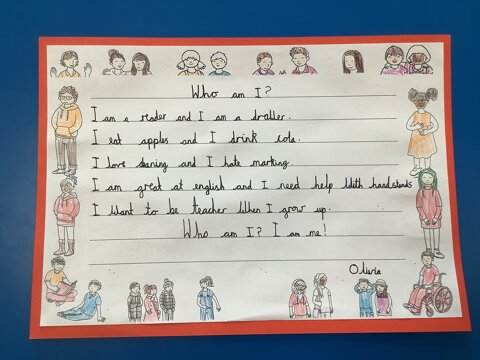 Who am I?
I am a reader and I am a draller.
I eat apples and I drink cola.
I love and I hate marting.
I am great at english and I need help With handstands
I Want to be teacher When I grow up.
Who am I? I am me!
Olivia